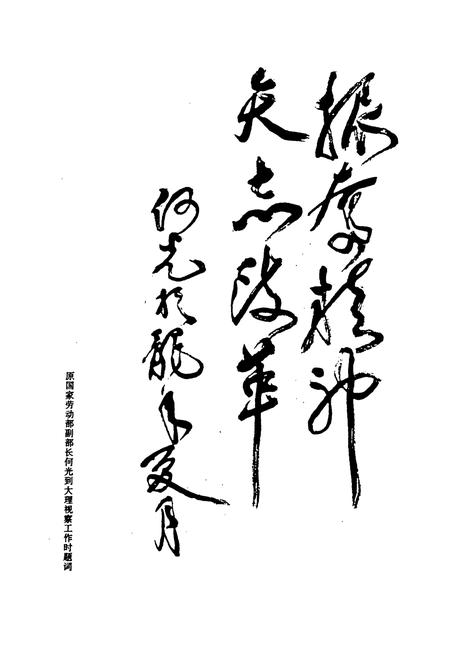 振奋精神
矢志改革
何光於龍年夏月
原国家劳动部副部长何光到大理视察工作时题词